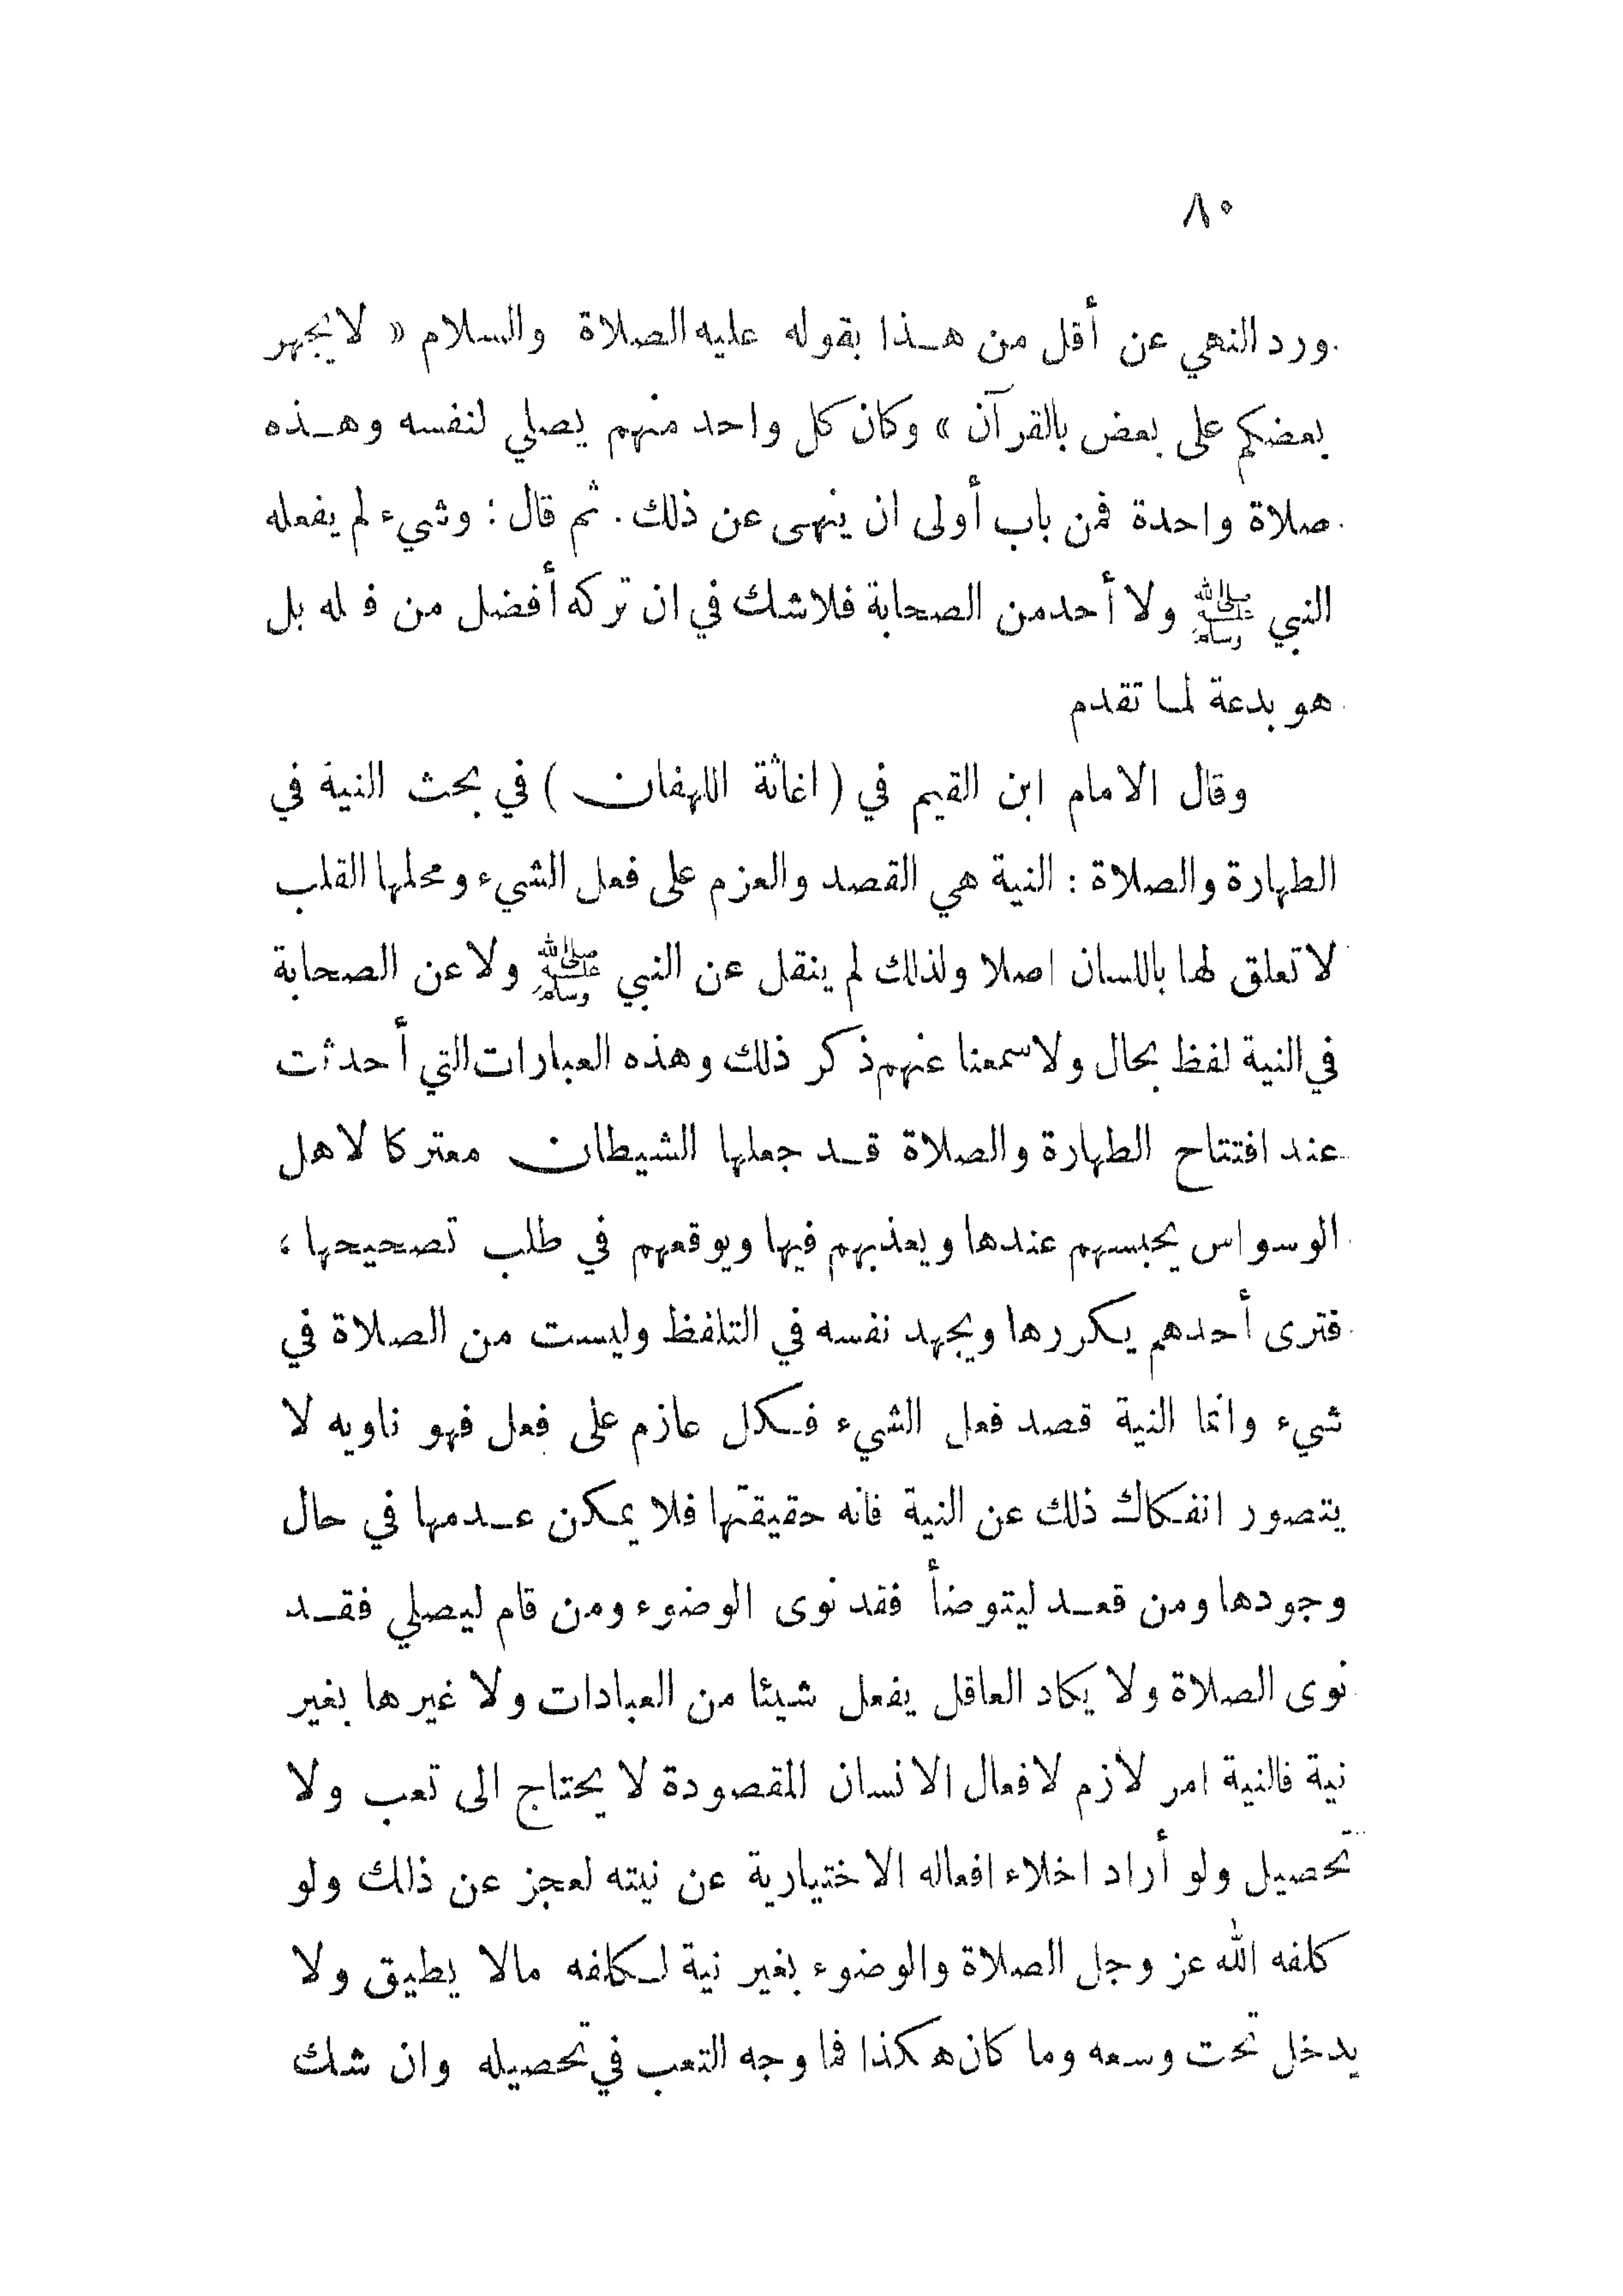 ٨٠
ورد النهي عن أقل من هـذا بقوله عليه الصلاة والسلام « لا يجهر
بعضكم على بعض بالقرآن » وكان كل واحد منهم يصلي لنفسه وهـذه
صلاة واحدة فمن باب أولى ان ينهى عن ذلك . ثم قال : وشيء لم يفعله
النبي ﷺ ولا أحد من الصحابة فلا شك في ان تركه أفضل من فعله بل
هو بدعة لما تقدم
وقال الامام ابن القيم في ( اغاثة اللهفان ) في بحث النية في
الطهارة والصلاة : النية هي القصد والعزم على فعل الشيء ومحلها القلب
لا تعلق لها باللسان اصلا ولذلك لم ينقل عن النبي ﷺ ولا عن الصحابة
في النية لفظ بحال ولا سمعنا عنهم ذكر ذلك وهذه العبارات التي أحدثت
عند افتتاح الطهارة والصلاة قـد جعلها الشيطان معتركا لاهل
الوسواس يحبسهم عندها ويعذبهم فيها ويوقعهم في طلب تصحيحها ،
فترى أحدهم يكررها ويجهد نفسه في التلفظ وليست من الصلاة في
شيء وانما النية قصد فعل الشيء فـكل عازم على فعل فهو ناويه لا
يتصور انفـكاك ذلك عن النية فانه حقيقتها فلا يمكن عـدمها في حال
وجودها ومن قعـد ليتوضأ فقد نوى الوضوء ومن قام ليصلي فقـد
نوى الصلاة ولا يكاد العاقل يفعل شيئا من العبادات ولا غيرها بغير
نية فالنية امر لازم لافعال الانسان المقصودة لا يحتاج الى تعب ولا
تحصيل ولو أراد اخلاء افعاله الاختيارية عن نيته لعجز عن ذلك ولو
كلفه الله عز وجل الصلاة والوضوء بغير نية لـكلفه مالا يطيق ولا
يدخل تحت وسعه وما كان هكذا فما وجه التعب في تحصيله وان شك